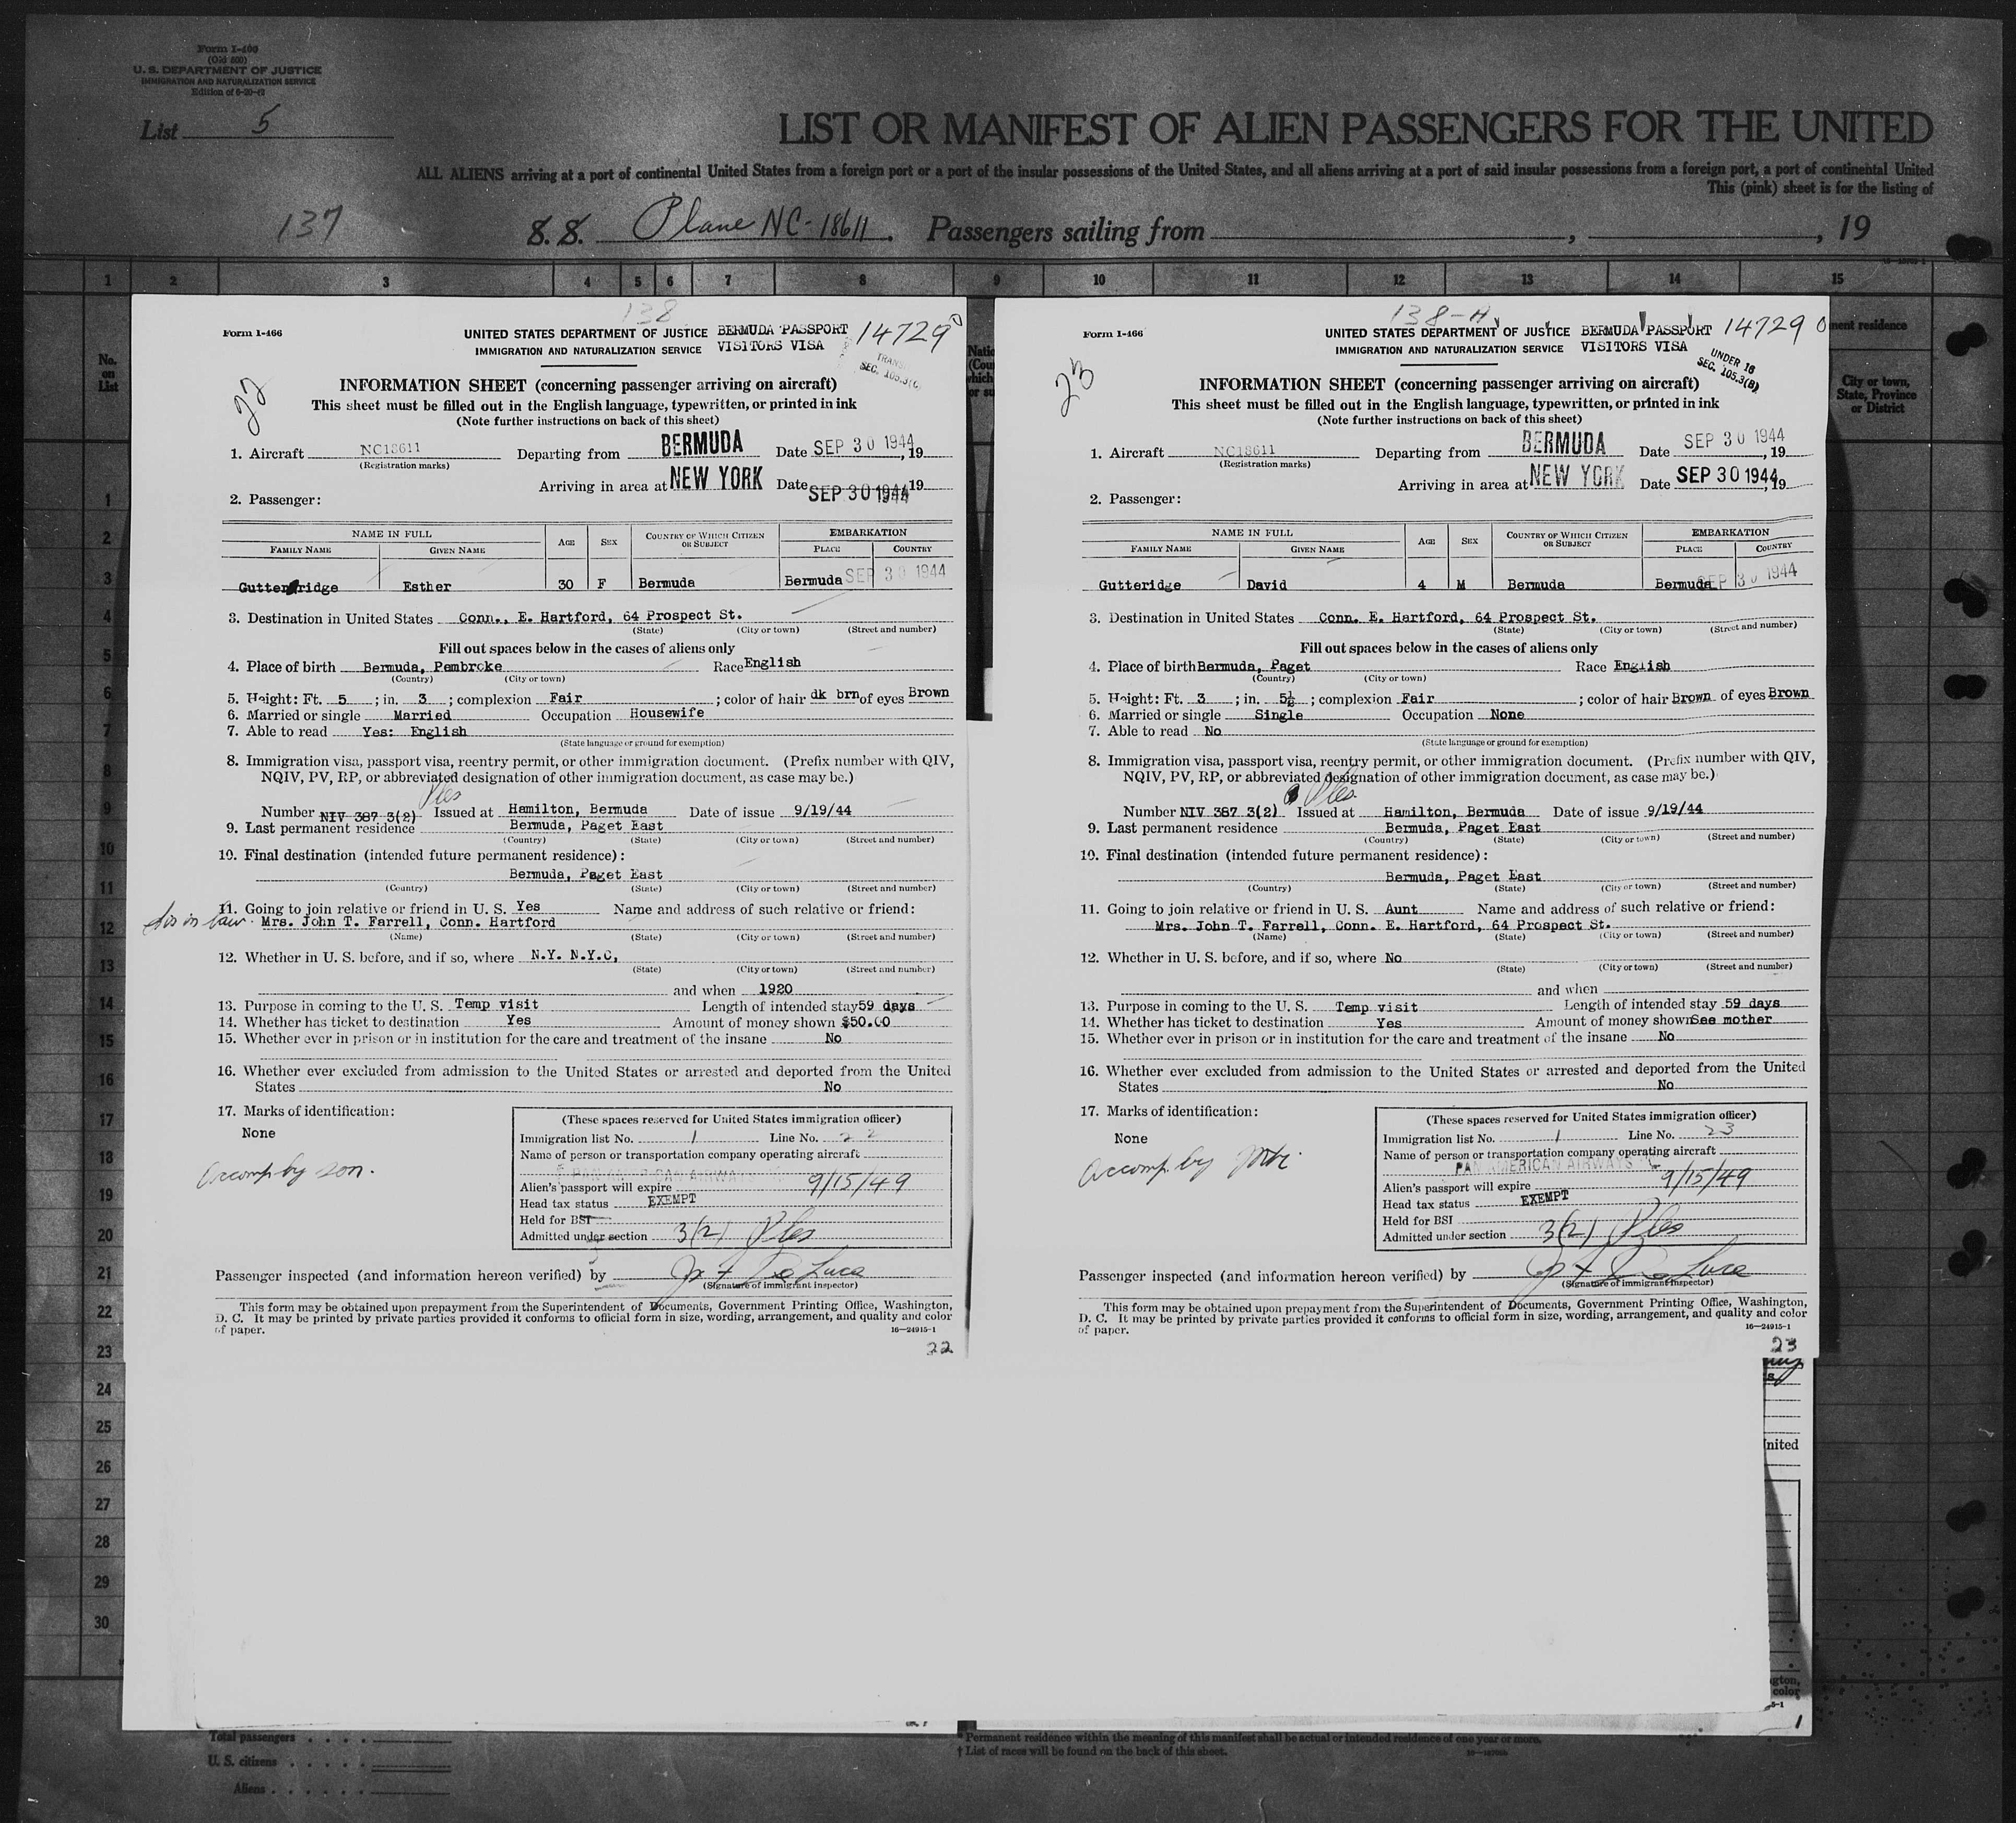 Form I-400
(Old 600)
U. S. DEPARTMENT OF JUSTICE
IMMIGRATION AND NATURALIZATION SERVICE
Edition of 6-20-42
List 5
LIST OR MANIFEST OF ALIEN PASSENGERS FOR THE UNITED
ALL ALIENS arriving at a port of continental United States from a foreign port or a port of the insular possessions of the United States, and all aliens arriving at a port of said insular possessions from a foreign port, a port of continental United
This (pink) sheet is for the listing of
137
S. S. Plane NC-18611. Passengers sailing from , , 19
1 2 3 4 5 6 7 8 9 10 11 12 13 14 15
No. on List
ment residence
City or town, State, Province or District
1
2
3
4
5
6
7
8
9
10
11
12
13
14
15
16
17
18
19
20
21
22
23
24
25
26
27
28
29
30
138
Form I-466
UNITED STATES DEPARTMENT OF JUSTICE BERMUDA PASSPORT 14729
IMMIGRATION AND NATURALIZATION SERVICE VISITORS VISA
SEC. 105.3(C)
22
INFORMATION SHEET (concerning passenger arriving on aircraft)
This sheet must be filled out in the English language, typewritten, or printed in ink
(Note further instructions on back of this sheet)
1. Aircraft NC18611 Departing from BERMUDA Date SEP 30 1944, 19
(Registration marks)
Arriving in area at NEW YORK Date SEP 30 1944 19
2. Passenger:
NAME IN FULL AGE SEX COUNTRY OF WHICH CITIZEN OR SUBJECT EMBARKATION
FAMILY NAME GIVEN NAME PLACE COUNTRY
Gutteridge Esther 30 F Bermuda Bermuda SEP 30 1944
3. Destination in United States Conn., E. Hartford, 64 Prospect St.
(State) (City or town) (Street and number)
Fill out spaces below in the cases of aliens only
4. Place of birth Bermuda, Pembroke Race English
(Country) (City or town)
5. Height: Ft. 5 ; in. 3 ; complexion Fair ; color of hair dk brn of eyes Brown
6. Married or single Married Occupation Housewife
7. Able to read Yes: English
(State language or ground for exemption)
8. Immigration visa, passport visa, reentry permit, or other immigration document. (Prefix number with QIV,
NQIV, PV, RP, or abbreviated designation of other immigration document, as case may be.)
Number NIV 387 3(2) Issued at Hamilton, Bermuda Date of issue 9/19/44
9. Last permanent residence Bermuda, Paget East
(Country) (State) (City or town) (Street and number)
10. Final destination (intended future permanent residence):
Bermuda, Paget East
(Country) (State) (City or town) (Street and number)
11. Going to join relative or friend in U. S. Yes Name and address of such relative or friend:
sis in law Mrs. John T. Farrell, Conn. Hartford
(Name) (State) (City or town) (Street and number)
12. Whether in U. S. before, and if so, where N.Y. N.Y.C,
(State) (City or town) (Street and number)
and when 1920
13. Purpose in coming to the U. S. Temp visit Length of intended stay 59 days
14. Whether has ticket to destination Yes Amount of money shown $50.00
15. Whether ever in prison or in institution for the care and treatment of the insane No
16. Whether ever excluded from admission to the United States or arrested and deported from the United
States No
17. Marks of identification:
None
Accomp by son.
(These spaces reserved for United States immigration officer)
Immigration list No. 1 Line No. 22
Name of person or transportation company operating aircraft
PAN AMERICAN AIRWAYS
Alien's passport will expire 9/15/49
Head tax status EXEMPT
Held for BSI
Admitted under section 3(2)
Passenger inspected (and information hereon verified) by
(Signature of immigrant inspector)
This form may be obtained upon prepayment from the Superintendent of Documents, Government Printing Office, Washington,
D. C. It may be printed by private parties provided it conforms to official form in size, wording, arrangement, and quality and color
of paper. 16—24915-1
22
138-A
Form I-466
UNITED STATES DEPARTMENT OF JUSTICE BERMUDA PASSPORT 14729
IMMIGRATION AND NATURALIZATION SERVICE VISITORS VISA
UNDER 16
SEC. 105.3(B)
23
INFORMATION SHEET (concerning passenger arriving on aircraft)
This sheet must be filled out in the English language, typewritten, or printed in ink
(Note further instructions on back of this sheet)
1. Aircraft NC18611 Departing from BERMUDA Date SEP 30 1944, 19
(Registration marks)
Arriving in area at NEW YORK Date SEP 30 1944, 19
2. Passenger:
NAME IN FULL AGE SEX COUNTRY OF WHICH CITIZEN OR SUBJECT EMBARKATION
FAMILY NAME GIVEN NAME PLACE COUNTRY
Gutteridge David 4 M Bermuda Bermuda SEP 30 1944
3. Destination in United States Conn. E. Hartford, 64 Prospect St.
(State) (City or town) (Street and number)
Fill out spaces below in the cases of aliens only
4. Place of birth Bermuda, Paget Race English
(Country) (City or town)
5. Height: Ft. 3 ; in. 5½ ; complexion Fair ; color of hair Brown of eyes Brown
6. Married or single Single Occupation None
7. Able to read No
(State language or ground for exemption)
8. Immigration visa, passport visa, reentry permit, or other immigration document. (Prefix number with QIV,
NQIV, PV, RP, or abbreviated designation of other immigration document, as case may be.)
Number NIV 387 3(2) Issued at Hamilton, Bermuda Date of issue 9/19/44
9. Last permanent residence Bermuda, Paget East
(Country) (State) (City or town) (Street and number)
10. Final destination (intended future permanent residence):
Bermuda, Paget East
(Country) (State) (City or town) (Street and number)
11. Going to join relative or friend in U. S. Aunt Name and address of such relative or friend:
Mrs. John T. Farrell, Conn. E. Hartford, 64 Prospect St.
(Name) (State) (City or town) (Street and number)
12. Whether in U. S. before, and if so, where No
(State) (City or town) (Street and number)
and when
13. Purpose in coming to the U. S. Temp visit Length of intended stay 59 days
14. Whether has ticket to destination Yes Amount of money shown See mother
15. Whether ever in prison or in institution for the care and treatment of the insane No
16. Whether ever excluded from admission to the United States or arrested and deported from the United
States No
17. Marks of identification:
None
Accomp. by
(These spaces reserved for United States immigration officer)
Immigration list No. 1 Line No. 23
Name of person or transportation company operating aircraft
PAN AMERICAN AIRWAYS
Alien's passport will expire 9/15/49
Head tax status EXEMPT
Held for BSI
Admitted under section 3(2)
Passenger inspected (and information hereon verified) by
(Signature of immigrant inspector)
This form may be obtained upon prepayment from the Superintendent of Documents, Government Printing Office, Washington,
D. C. It may be printed by private parties provided it conforms to official form in size, wording, arrangement, and quality and color
of paper. 16—24915-1
23
nited
gton,
color
5-1
1
Total passengers
U. S. citizens
Aliens
* Permanent residence within the meaning of this manifest shall be actual or intended residence of one year or more.
† List of races will be found on the back of this sheet.